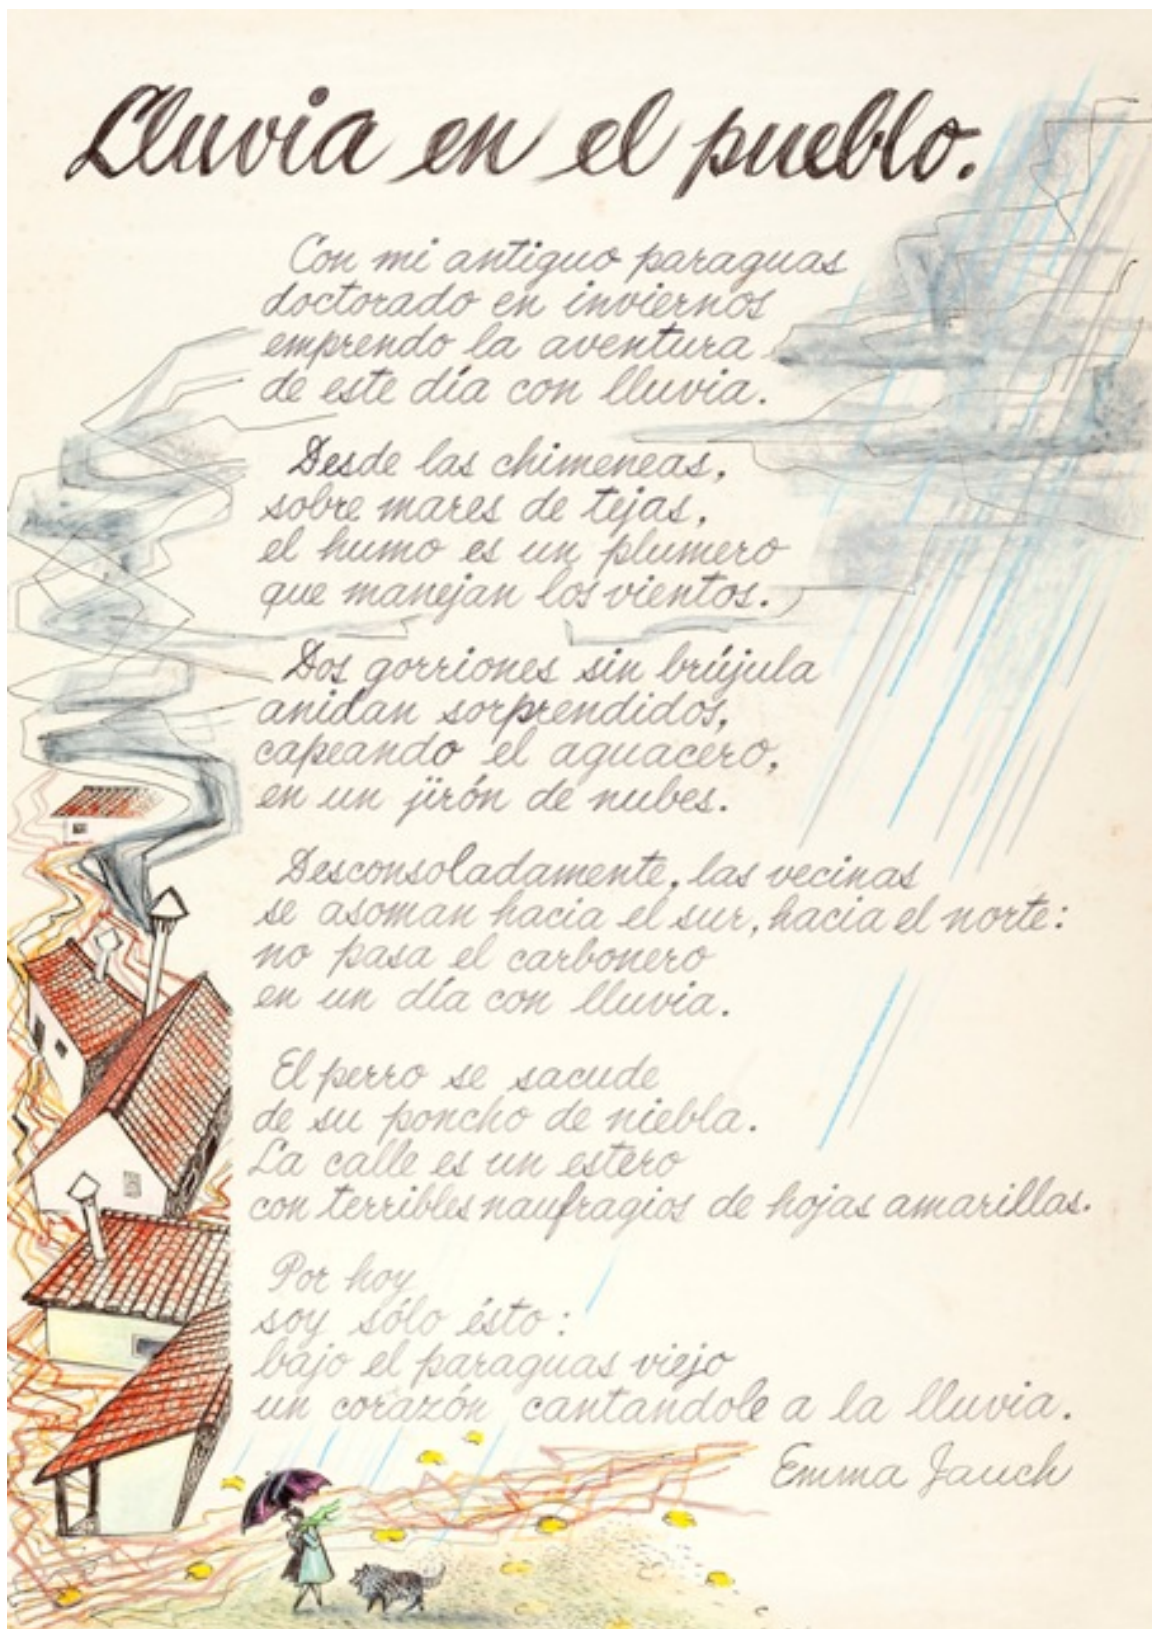 Lluvia en el pueblo.
Con mi antiguo paraguas
doctorado en inviernos
emprendo la aventura
de este día con lluvia.
Desde las chimeneas,
sobre mares de tejas,
el humo es un plumero
que manejan los vientos.
Dos gorriones sin brújula
anidan sorprendidos,
capeando el aguacero,
en un jirón de nubes.
Desconsoladamente, las vecinas
se asoman hacia el sur, hacia el norte:
no pasa el carbonero
en un día con lluvia.
El perro se sacude
de su poncho de niebla.
La calle es un estero
con terribles naufragios de hojas amarillas.
Por hoy
soy sólo ésto:
bajo el paraguas viejo
un corazón cantandole a la lluvia.
Emma Jauch